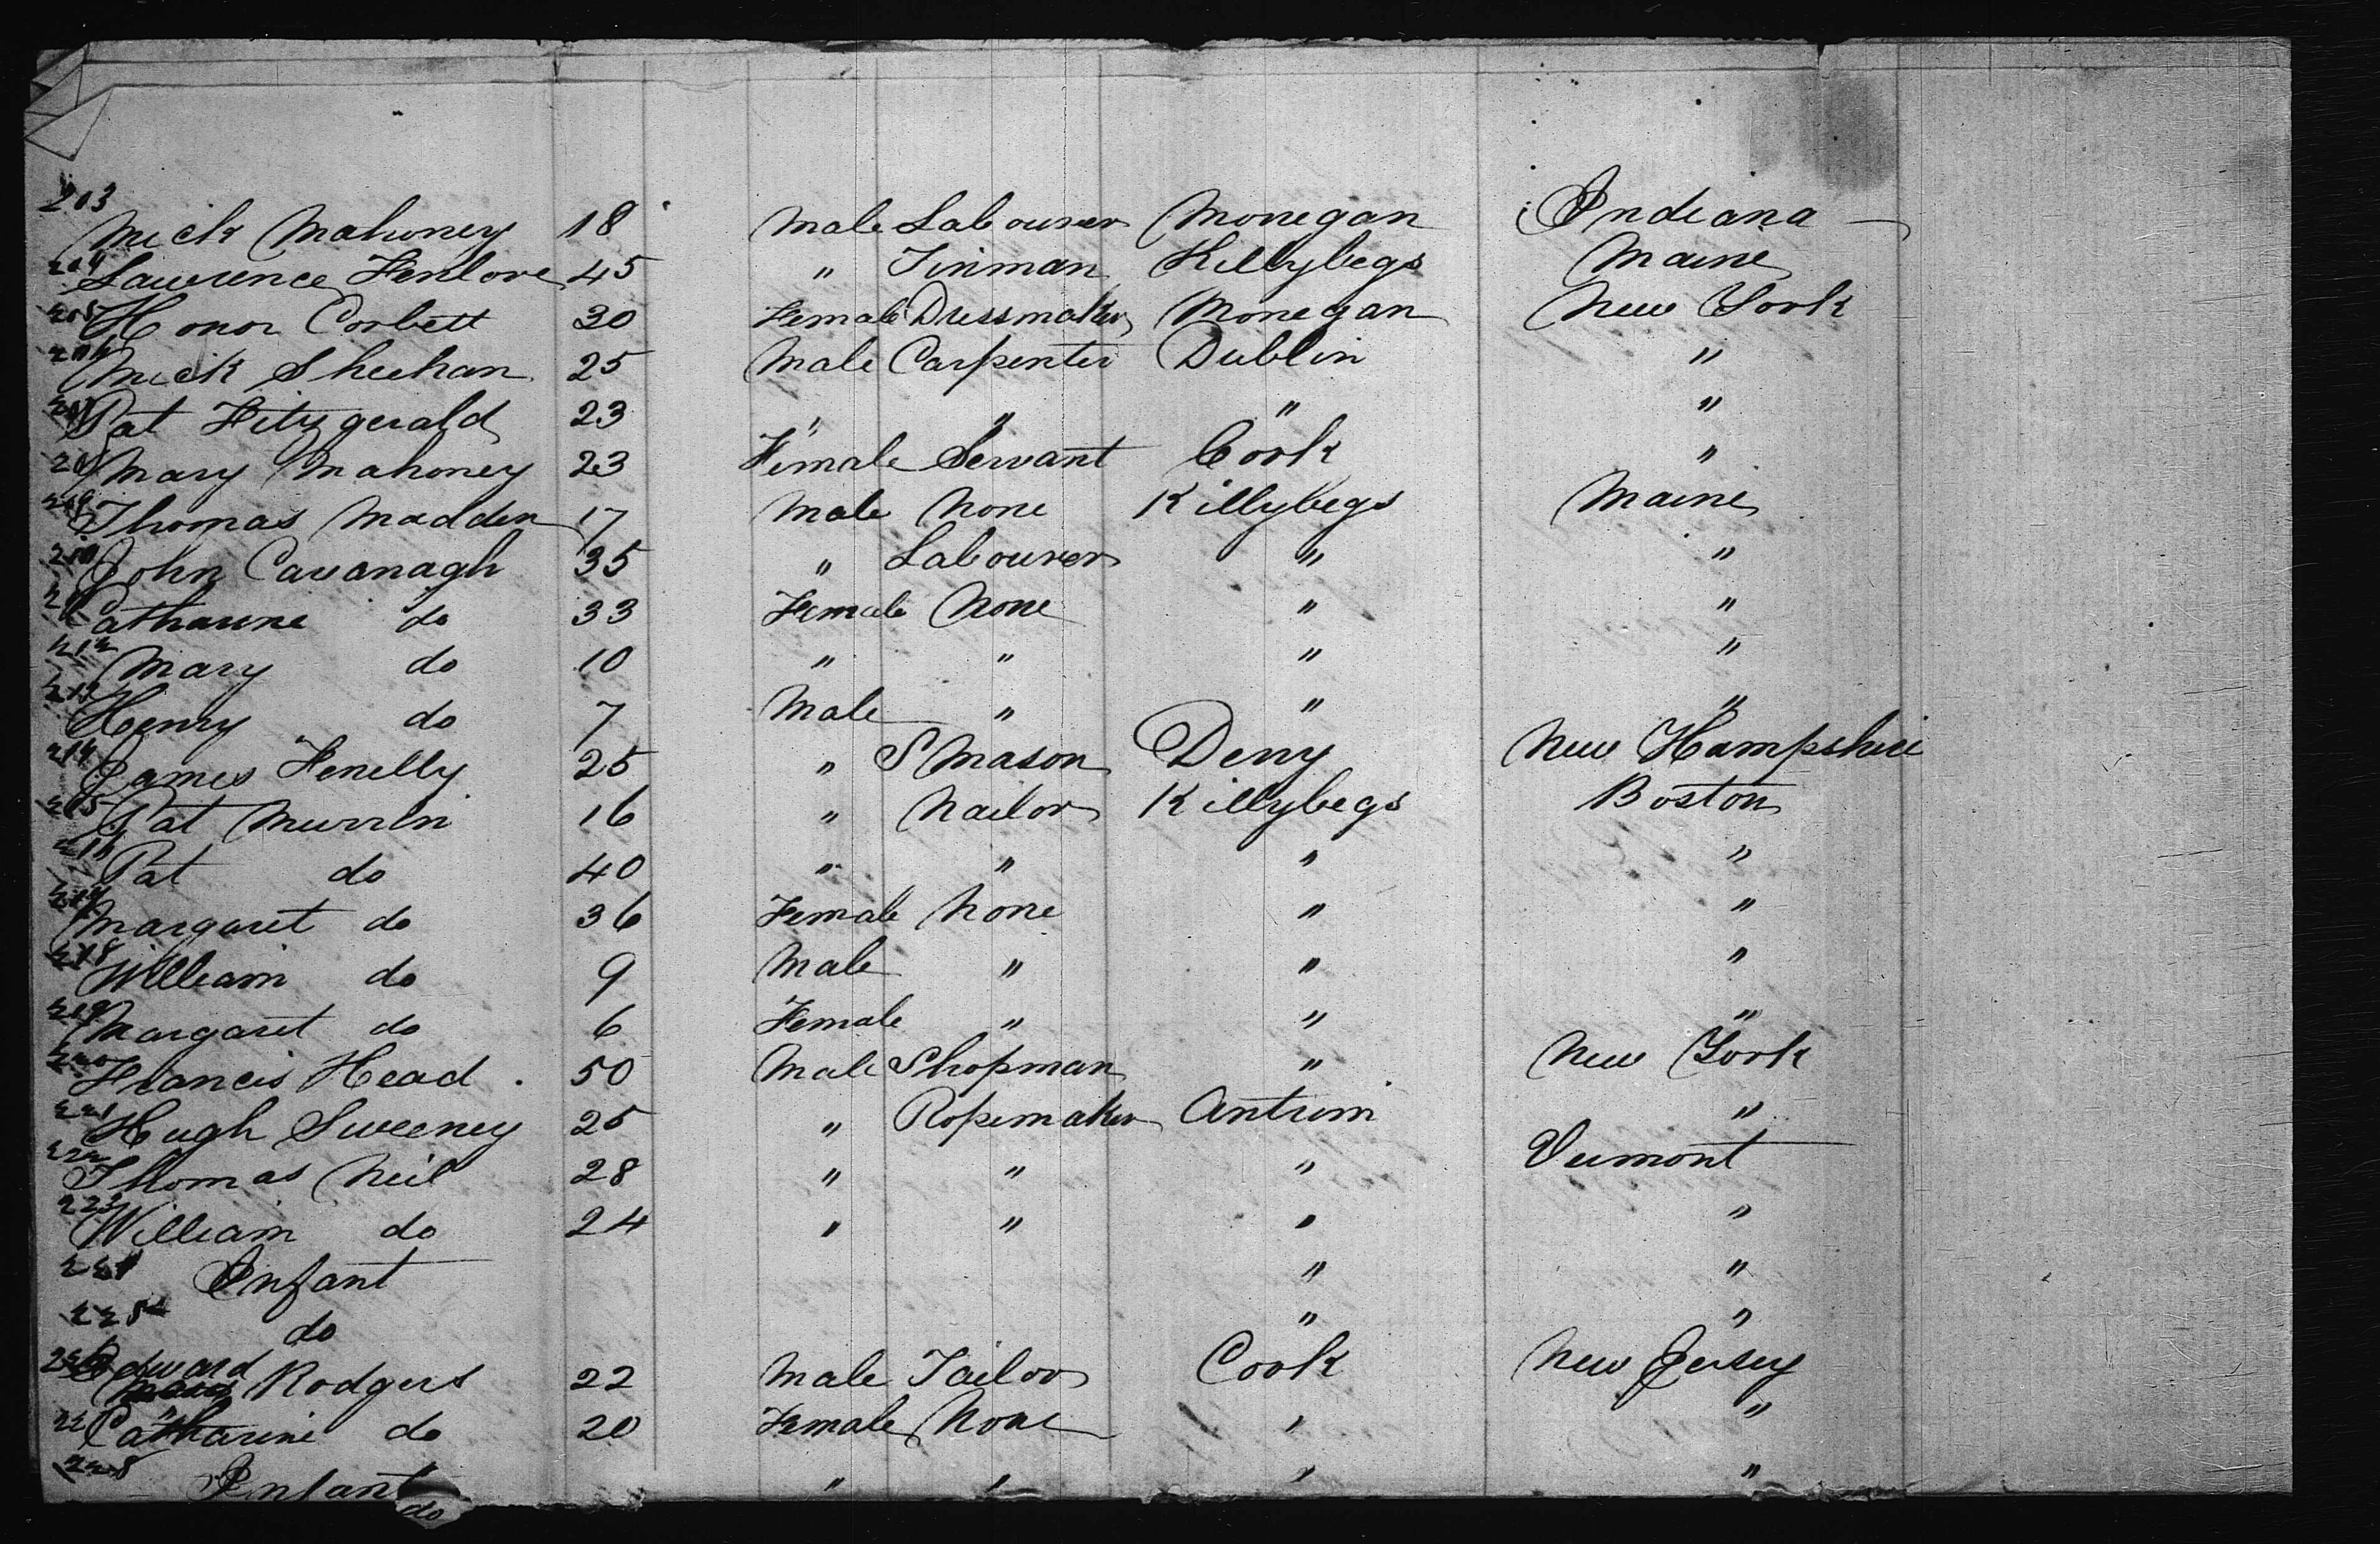 203 Mick Mahoney 18 Male Labourer Monegan Indiana
204 Lawrence Fenlove 45 " Tinman Killybegs Maine
205 Honor Corbett 30 Female Dressmaker Monegan New York
206 Mick Sheehan 25 Male Carpenter Dublin "
207 Pat Fitzgerald 23 " " " "
208 Mary Mahoney 23 Female Servant Cork "
209 Thomas Madden 17 Male None Killybegs Maine
210 John Cavanagh 35 " Labourer " "
211 Catharine do 33 Female None " "
212 Mary do 10 " " " "
213 Henry do 7 Male " " "
214 James Fenelly 25 " S Mason Derry New Hampshire
215 Pat Murrin 16 " Nailor Killybegs Boston
216 Pat do 40 " " " "
217 Margaret do 36 Female None " "
218 William do 9 Male " " "
219 Margaret do 6 Female " " "
220 Francis Head 50 Male Shopman " New York
221 Hugh Sweeney 25 " Ropemaker Antrim "
222 Thomas Neil 28 " " " Vermont
223 William do 24 " " " "
224 Infant " "
225 do " "
226 Edward Rodgers 22 Male Tailor Cork New Jersey
227 Catharine do 20 Female None " "
228 Infant do " " " "